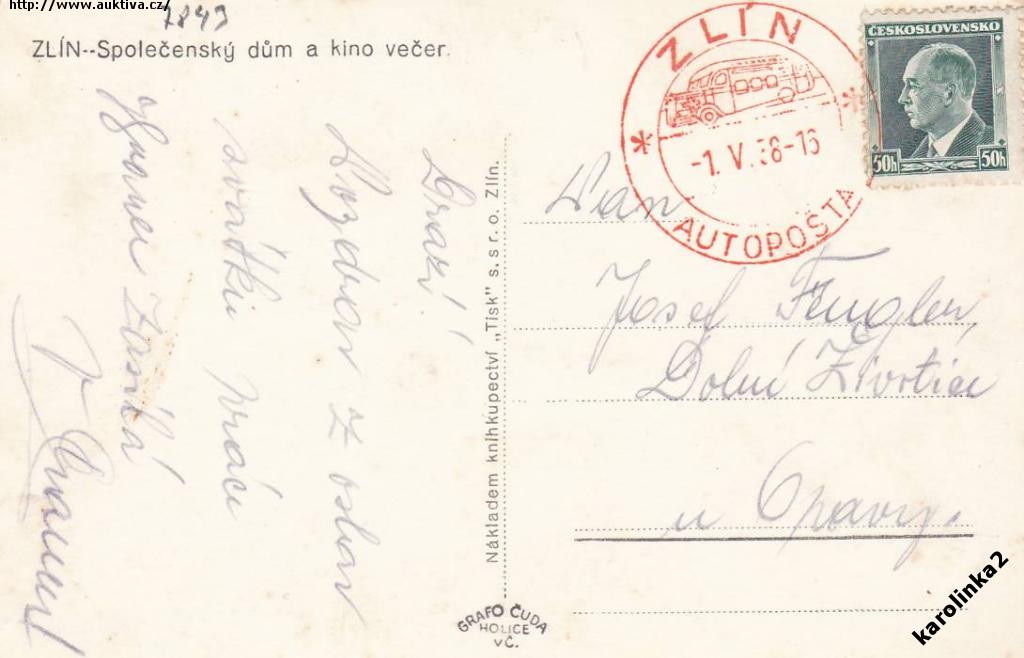 http://www.auktiva.cz/
7843
ZLÍN--Společenský dům a kino večer.
ZLÍN
-1. V. 38-16
AUTOPOŠTA
ČESKOSLOVENSKO
50h 50h
Drazí!
Pozdrav z oslav
svátku práce
V
Nákladem knihkupectví „Tisk" s. s r. o. Zlín.
GRAFO ČUDA
HOLICE
v Č.
Pan
Josef
Dolní Životice
u Opavy.
karolinka2